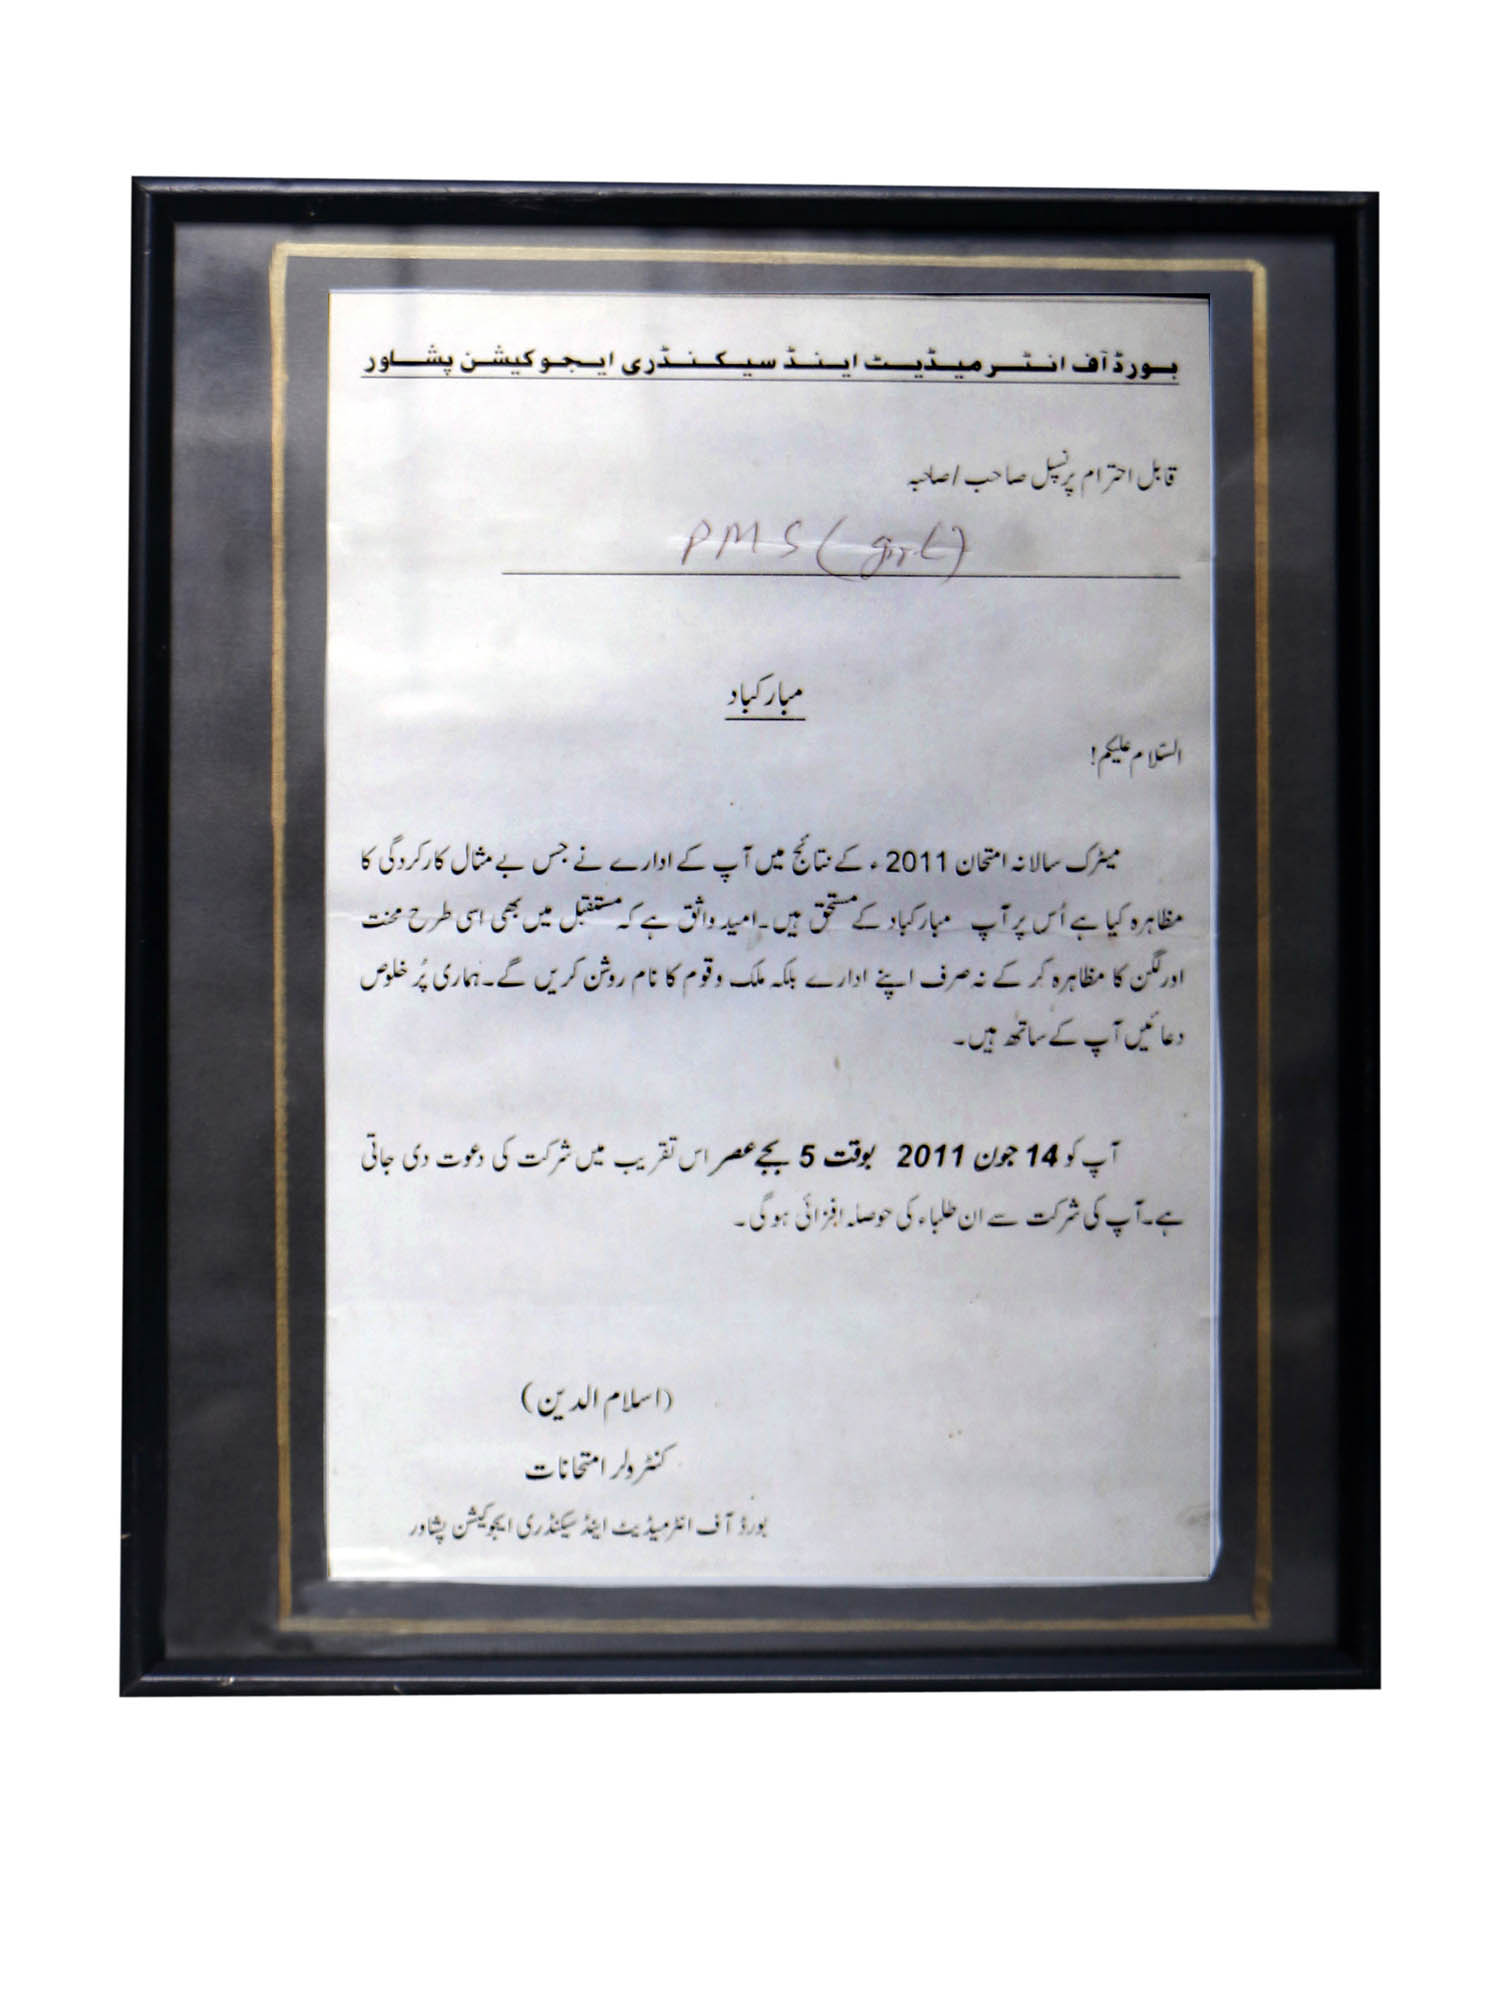 بورڈ آف انٹرمیڈیٹ اینڈ سیکنڈری ایجوکیشن پشاور
قابل احترام پرنسپل صاحب / صاحبہ
PMS (girl)
مبارکباد
السّلام علیکم!
میٹرک سالانہ امتحان 2011ء کے نتائج میں آپ کے ادارے نے جس بے مثال کارکردگی کا
مظاہرہ کیا ہے اُس پر آپ مبارکباد کے مستحق ہیں۔ امید واثق ہے کہ مستقبل میں بھی اسی طرح محنت
اور لگن کا مظاہرہ کر کے نہ صرف اپنے ادارے بلکہ ملک و قوم کا نام روشن کریں گے۔ ہماری پُر خلوص
دعائیں آپ کے ساتھ ہیں۔
آپ کو 14 جون 2011 بوقت 5 بجے عصر اس تقریب میں شرکت کی دعوت دی جاتی
ہے۔ آپ کی شرکت سے ان طلباء کی حوصلہ افزائی ہوگی۔
(اسلام الدین)
کنٹرولر امتحانات
بورڈ آف انٹرمیڈیٹ اینڈ سیکنڈری ایجوکیشن پشاور